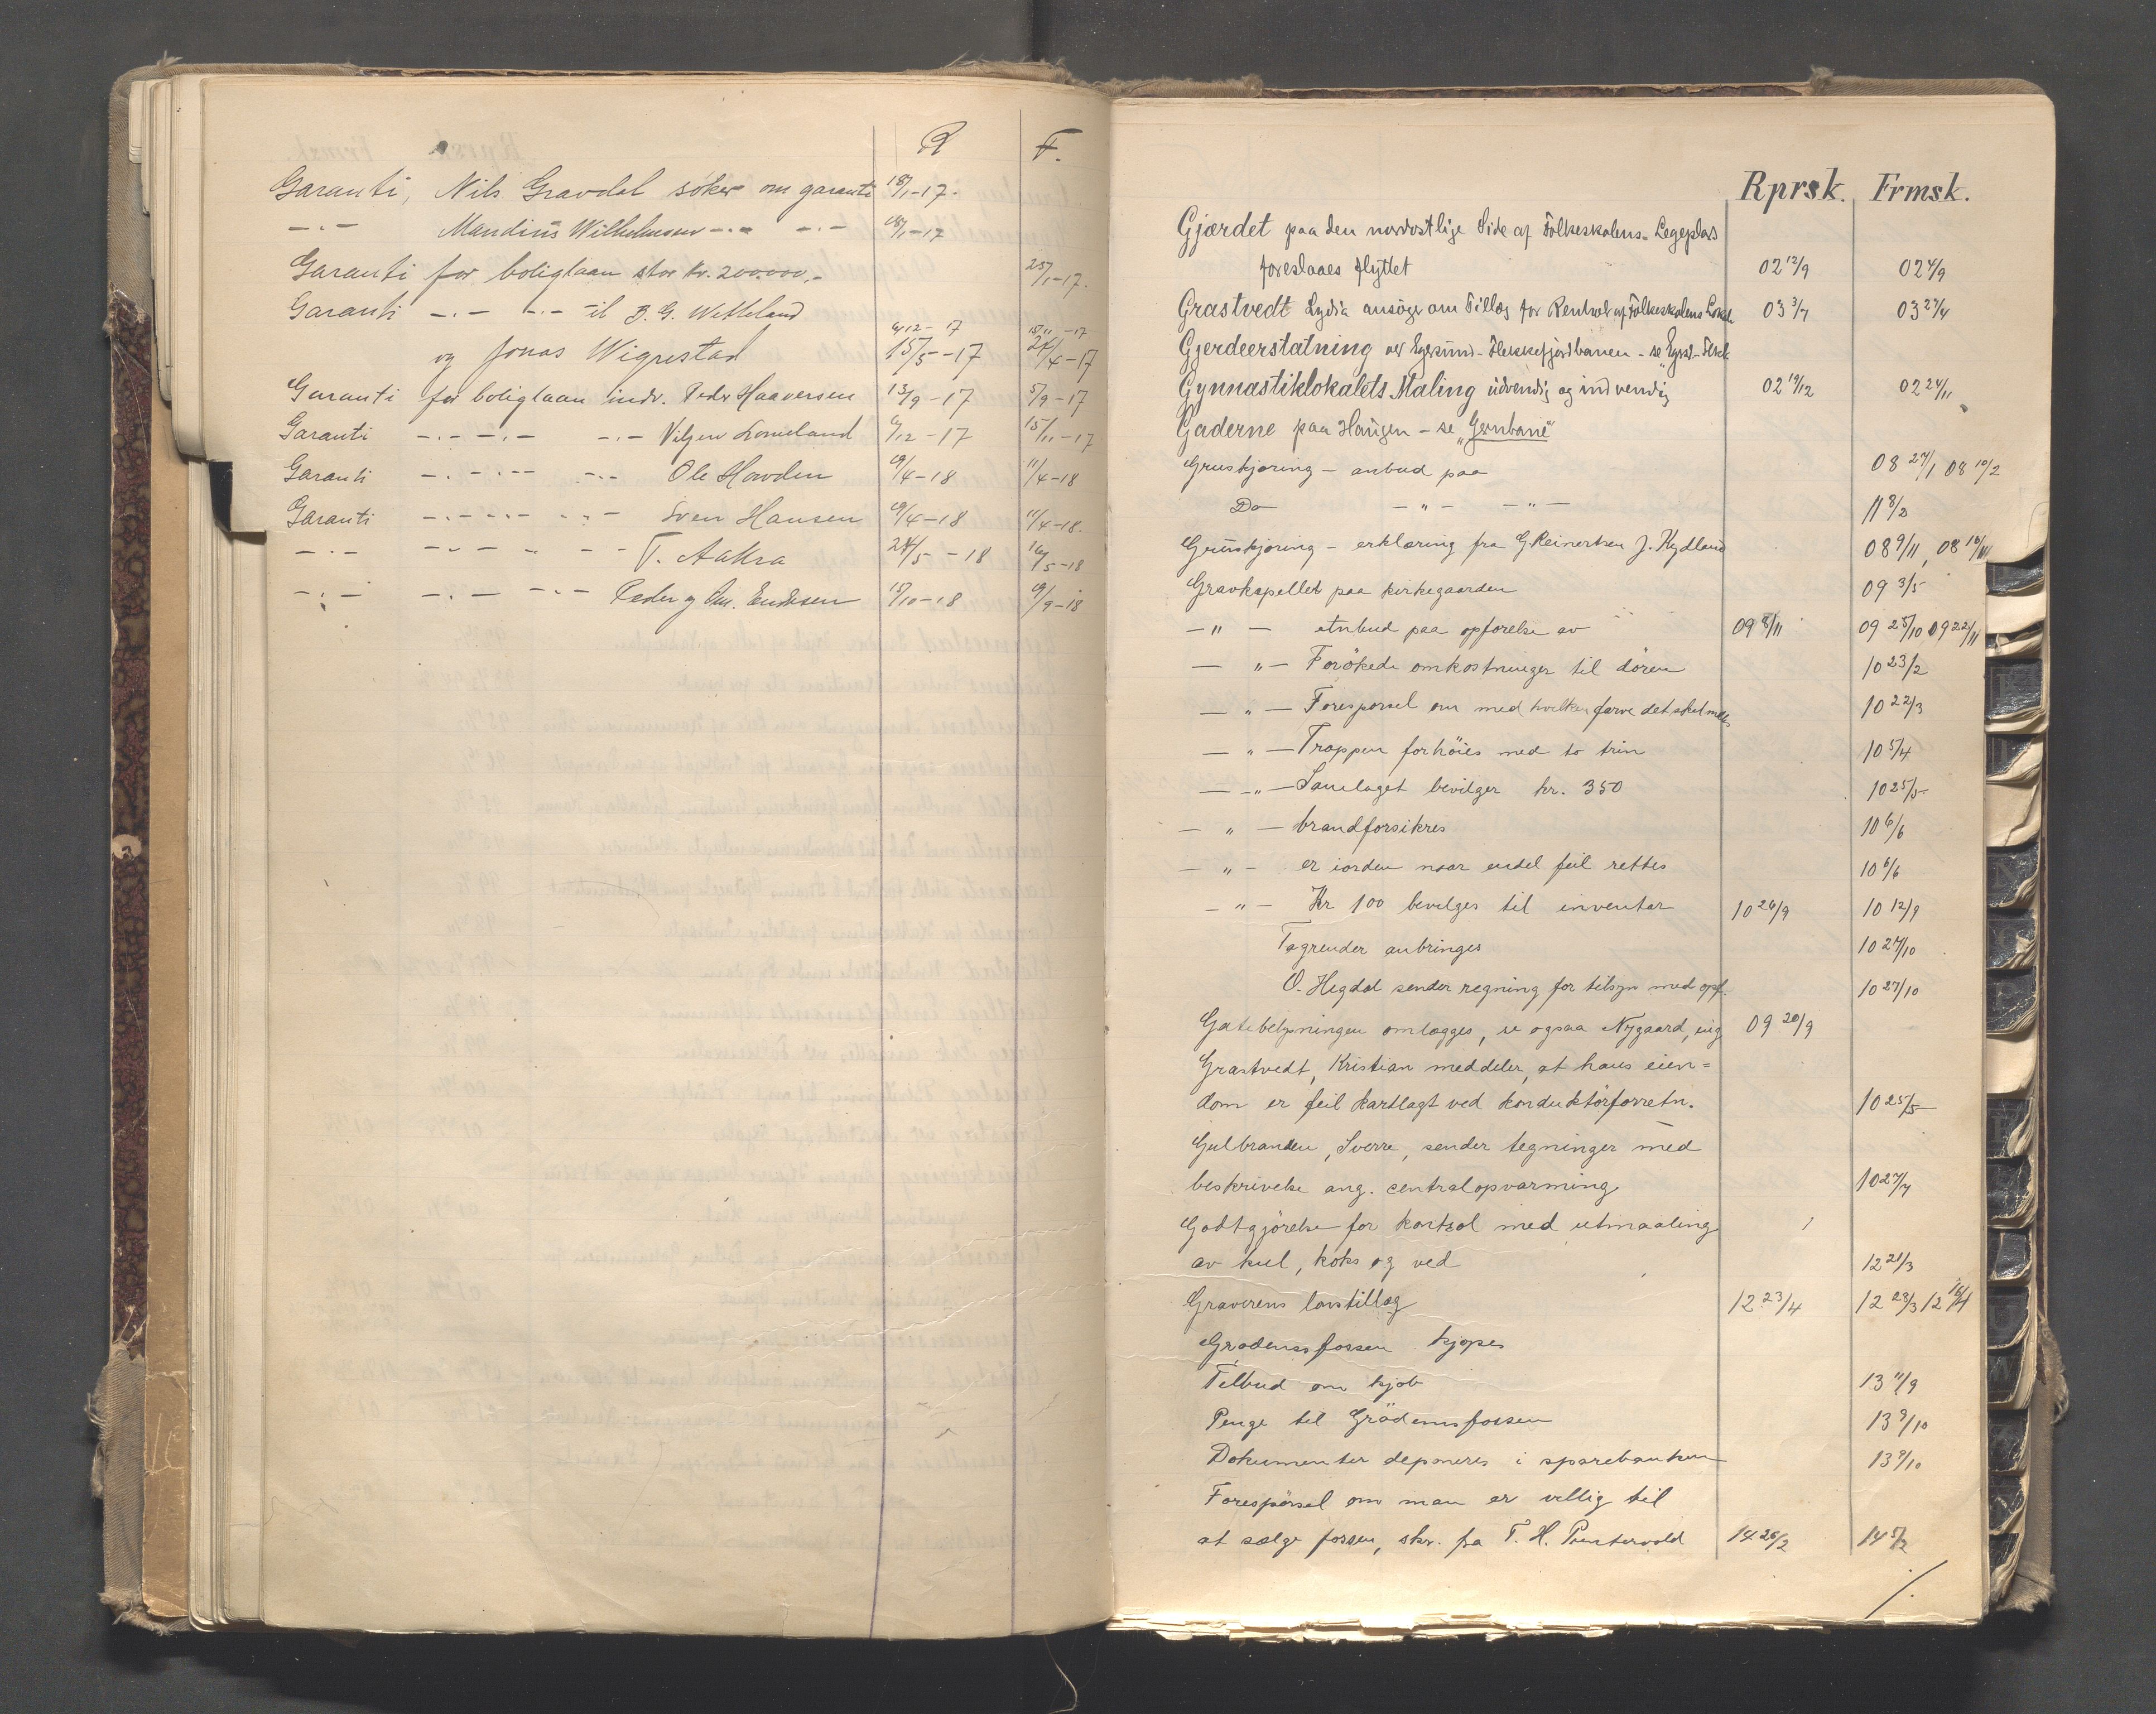 R F.
Garanti, Nils Gravdal söker om garanti 18/1-17.
-.- Mandius Wilhelmsen -.- -.- 18/1-17
Garanti for boliglaan stor kr. 200.000,- 25/1-17.
Garanti -.- -.- til B. G. Wetteland 6/12-17 15/11-17
og Jonas Wigrestad 15/5-17 24/4-17
Garanti for boliglaan indv. Peder Haaversen 13/9-17 5/9-17
Garanti -.- -.- -.- Viljen Lomeland 6/12-17 15/11-17
Garanti -.- -.- -.- Ole Hovden 19/4-18 11/4-18
Garanti -.- -.- -.- Sven Hansen 19/4-18 11/4-18.
-.- -.- -.- T. Aakra 24/5-18 16/5-18
-.- -.- -.- Peder Endresen 15/10-18 19/9-18
Rprsk. Frmsk.
Gjærdet paa den nordostlige Side af Folkeskolens Legeplads
foreslaaes flyttet 02 12/9 02 4/9
Grastvedt Lydia ansöger om Tillæg for Renhold af Folkeskolens Lokale 03 3/7 03 27/4
Gjerdeerstatning ved Egersund-Flekkefjordbanen - se Egrsd-Flkfj
Gymnastiklokalets Maling udvendig og indvendig 02 19/12 02 24/11
Gaderne paa Haugen - se "Jernbane"
Gruskjøring - anbud paa 08 27/1 08 10/2
Do -"- -"- 11 8/2
Gruskjøring - erklæring fra G. Reinertsen J. Kydland 08 9/11, 08 16/11
Gravkapellet paa kirkegaarden 09 3/5
-"- Anbud paa opførelse av 09 8/11 09 25/10 09 22/11
-"- Forökede omkostninger til dören 10 23/2
-"- Forespørsel om med hvilken farve det skal males 10 22/3
-"- Trappen forhöies med to trin 10 5/4
-"- Samlaget bevilger kr. 350 10 25/5
-"- brandforsikres 10 6/6
-"- er iorden naar endel feil rettes 10 6/6
-"- Kr 100 bevilges til inventar 10 26/9 10 12/9
Tagrender anbringes 10 27/10
O. Hegdal sender regning for tilsyn med opf. 10 27/10
Gatebelysningen omlægges, se ogsaa Nygaard, ing 09 20/9
Grastvedt, Kristian meddeler, at hans eien=
dom er feil kartlagt ved konduktörforretn. 10 25/5
Gulbransen, Sverre, sender tegninger med
beskrivelse ang. centralopvarming 10 27/7
Godtgjörelse for kontrol med utmaaling
av kul, koks og ved 12 21/3
Graverens lønstillæg 12 23/4 12 28/3 12 16/4
Grødemsfossen kjøpes
Tilbud om kjøb 13 11/9
Penge til Grödemsfossen 13 9/10
Dokumenter deponeres i sparebanken 13 9/10
Forespörsel om man er villig til
at sælge fossen, skr. fra T. H. Puntervold 14 26/2 14 5/2
/.